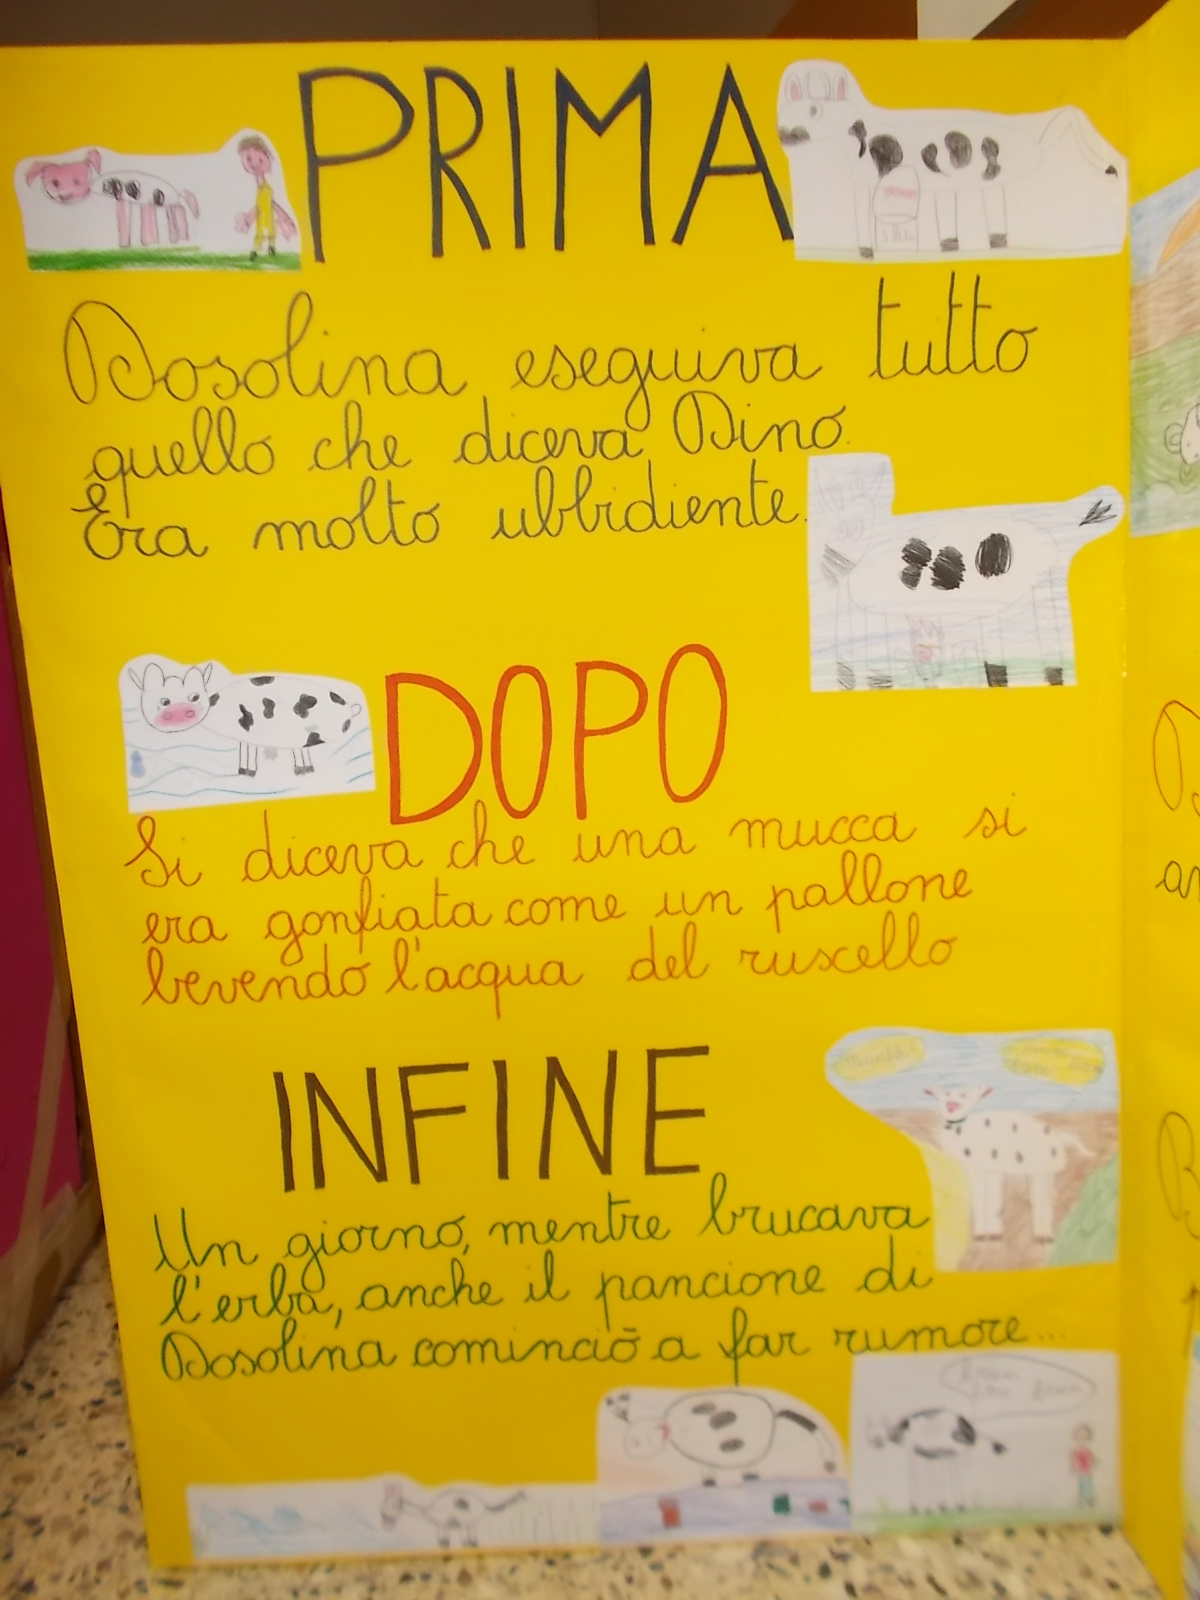 PRIMA
Dosolina eseguiva tutto
quello che diceva Dino.
Era molto ubbidiente.
DOPO
Si diceva che una mucca si
era gonfiata come un pallone
bevendo l'acqua del ruscello
INFINE
Un giorno, mentre brucava
l'erba, anche il pancione di
Dosolina cominciò a far rumore...